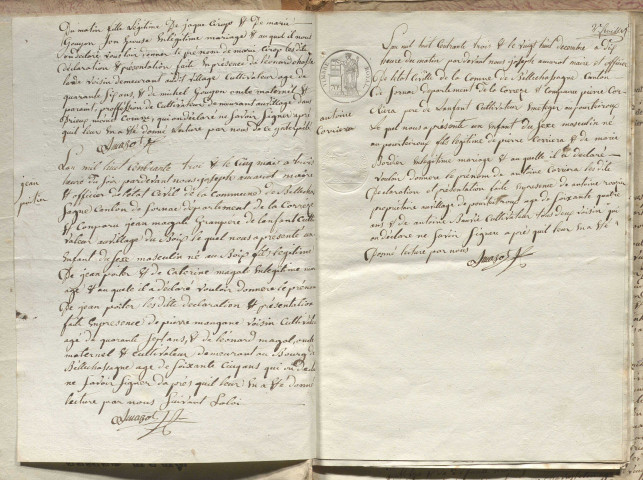 Du matin fille Légitime De jaque Ciroys & De marie
Goujon Son Epouse En légitime mariage & auquel il nous
ont déclaré Vouloir donner le prénom de marie Ciroy les dite
déclaration & présentation faite En présence de leonard
voisin demeurant audit village Cultivateur age de
quarante six ans, & de michel Goujon oncle maternel &
parant, proffession de Cultivateur demeurant au village
qui on déclaré ne Savoir Signer après
quil leur En a Eté donné lecture par nous
Jmazot
jean
poitier
Lan mil huit Cent trente trois & le Cinq mai a trois
heure du Soir pardevant nous joseph amazot maire
& officier de létat Civil de la Commune de Bellechas
sagne Canton de Sornac département de la Correze
& Comparu jean magot Grampere de Lanfant Culti
vateur au village du Bois lequel nous a présenté un
Enfant du Sexe masculin né au Bois fils légitime
De jean poitier & de Caterine magot En légitime mari
age & auquel il a déclaré Vouloir donner le prénom
De jean poitier les dite déclaration & présentation
faite En présence de pierre mangane voisin Cultivat
agé de quarante Sept ans, & de léonard magot, oncle
maternel & Cultivateur demeurant au Bourg de
Bellechassagne age de Soixante Cinq ans qui on déclaré
ne Savoir Signer da près quil leur En a Eté donné
lecture par nous Suivant Laloi
Jmazot
antoine
Corriera
Lan mil huit Cent trente trois & le vingt huit decembre a dix
heure du matin par devant nous joseph amazot maire et officier
de létat Civille de la Comune de Bellechassagne Canton
de Sornac departement de la Correze & Comparu pierre Cor
riera pere de Lanfant Cultivateur
Le quel nous a présenté un Enfant du Sexe masculin né
au fils légitime de pierre Corriera & de marie
Bordes En légitime mariage & au quelle il a déclaré
Vouloir donner le prenom de antoine Coriera les dite
Déclaration et présentation faite En présense de antoine
propriétaire au village de age de Soixante quatre
ans & de antoine Cultivateur tous deux voisin qui
on déclaré ne Savoir Signer apré quil leur En a Eté
Donné lecture par nous
Jmazot